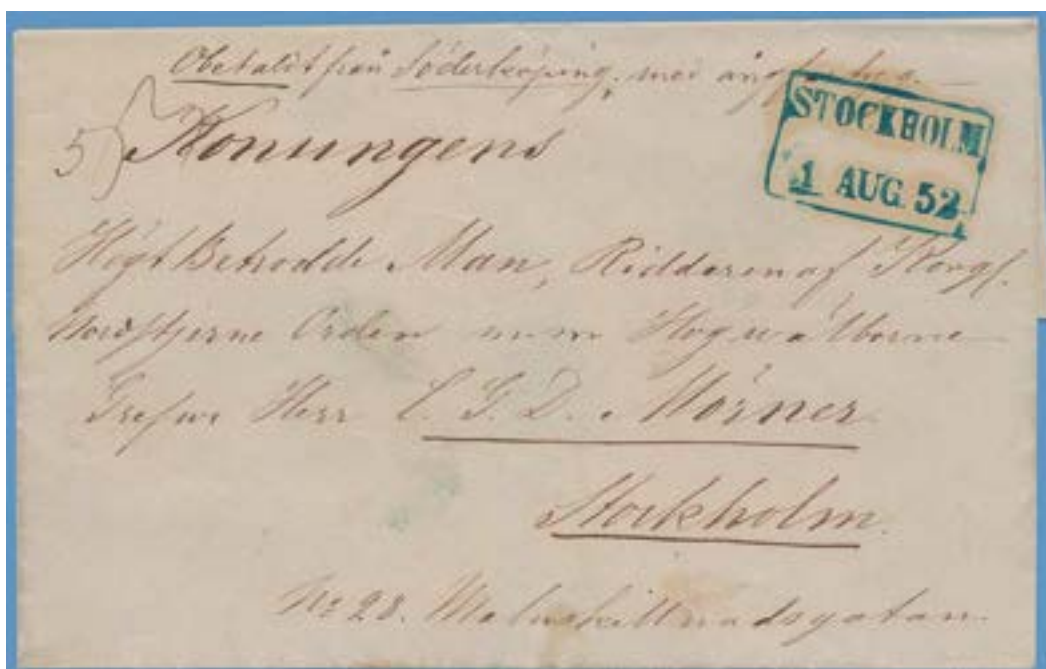 Obetaldt från Söderköping, med
STOCKHOLM
1 AUG. 52
5
Konungens
Högt Betrodde Man, Riddaren af Kongl.
Nordstjerne Orden samt Högwälborne
Grefwe Herr C. G. D. Mörner
Stockholm.
No 28. Malmskillnadsgatan.